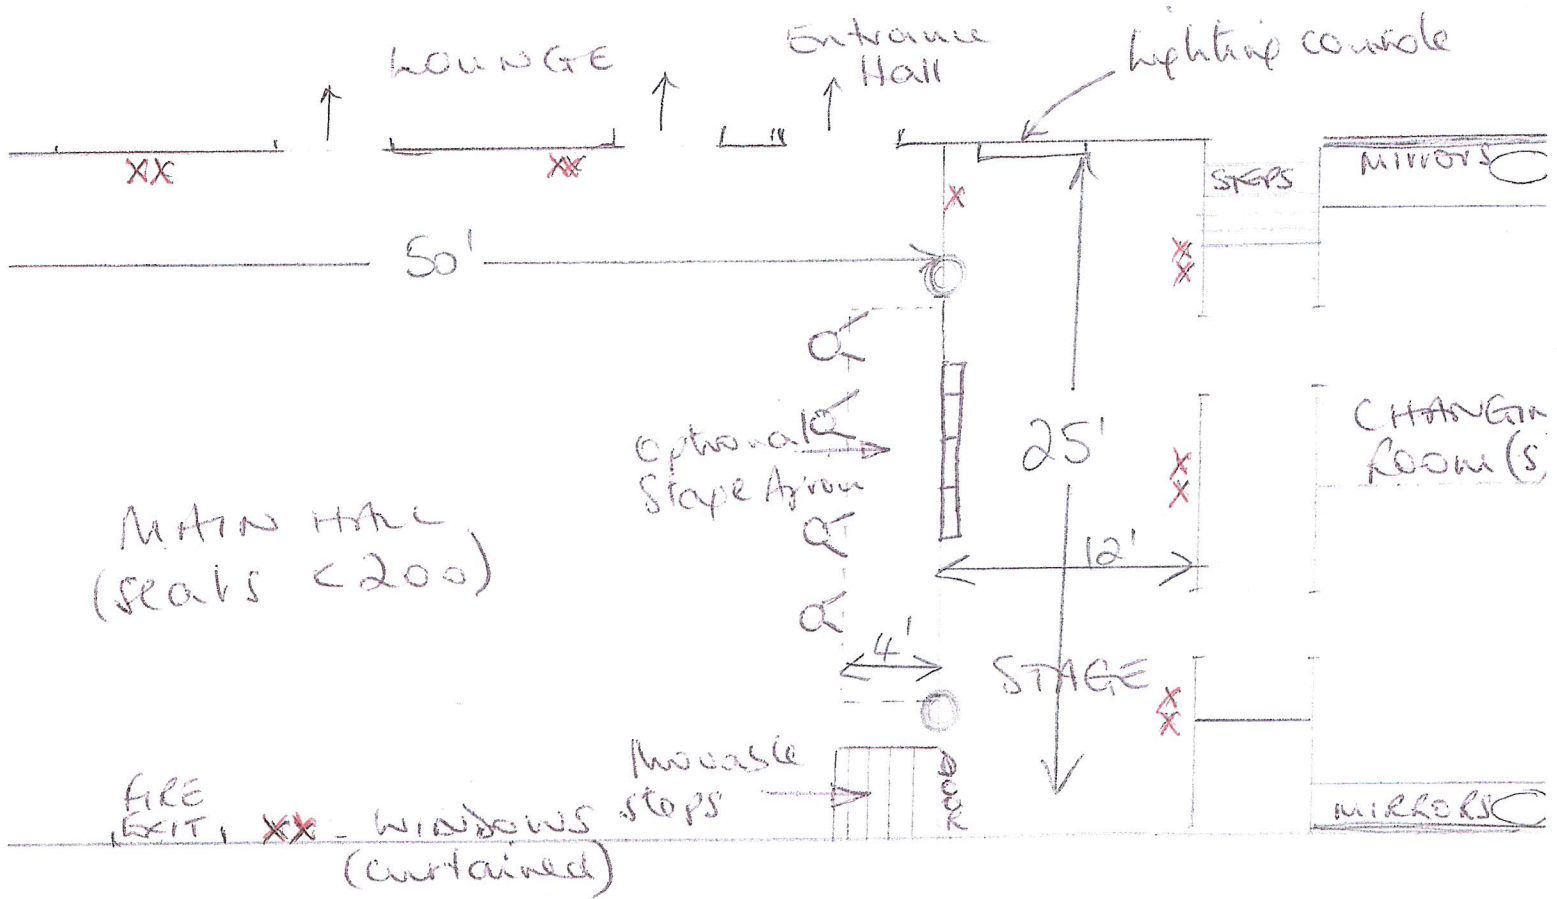 LOUNGE
Entrance
Hall
Lighting console
XX
XX
X
STEPS
MIRRORS
50'
X
X
Optional
Stage Apron
25'
X
X
CHANGIN
ROOM(S
MAIN HALL
(seats <200)
12'
4'
STAGE
X
X
Movable
steps
DOOR
FIRE
EXIT
XX - WINDOWS
(curtained)
MIRRORS